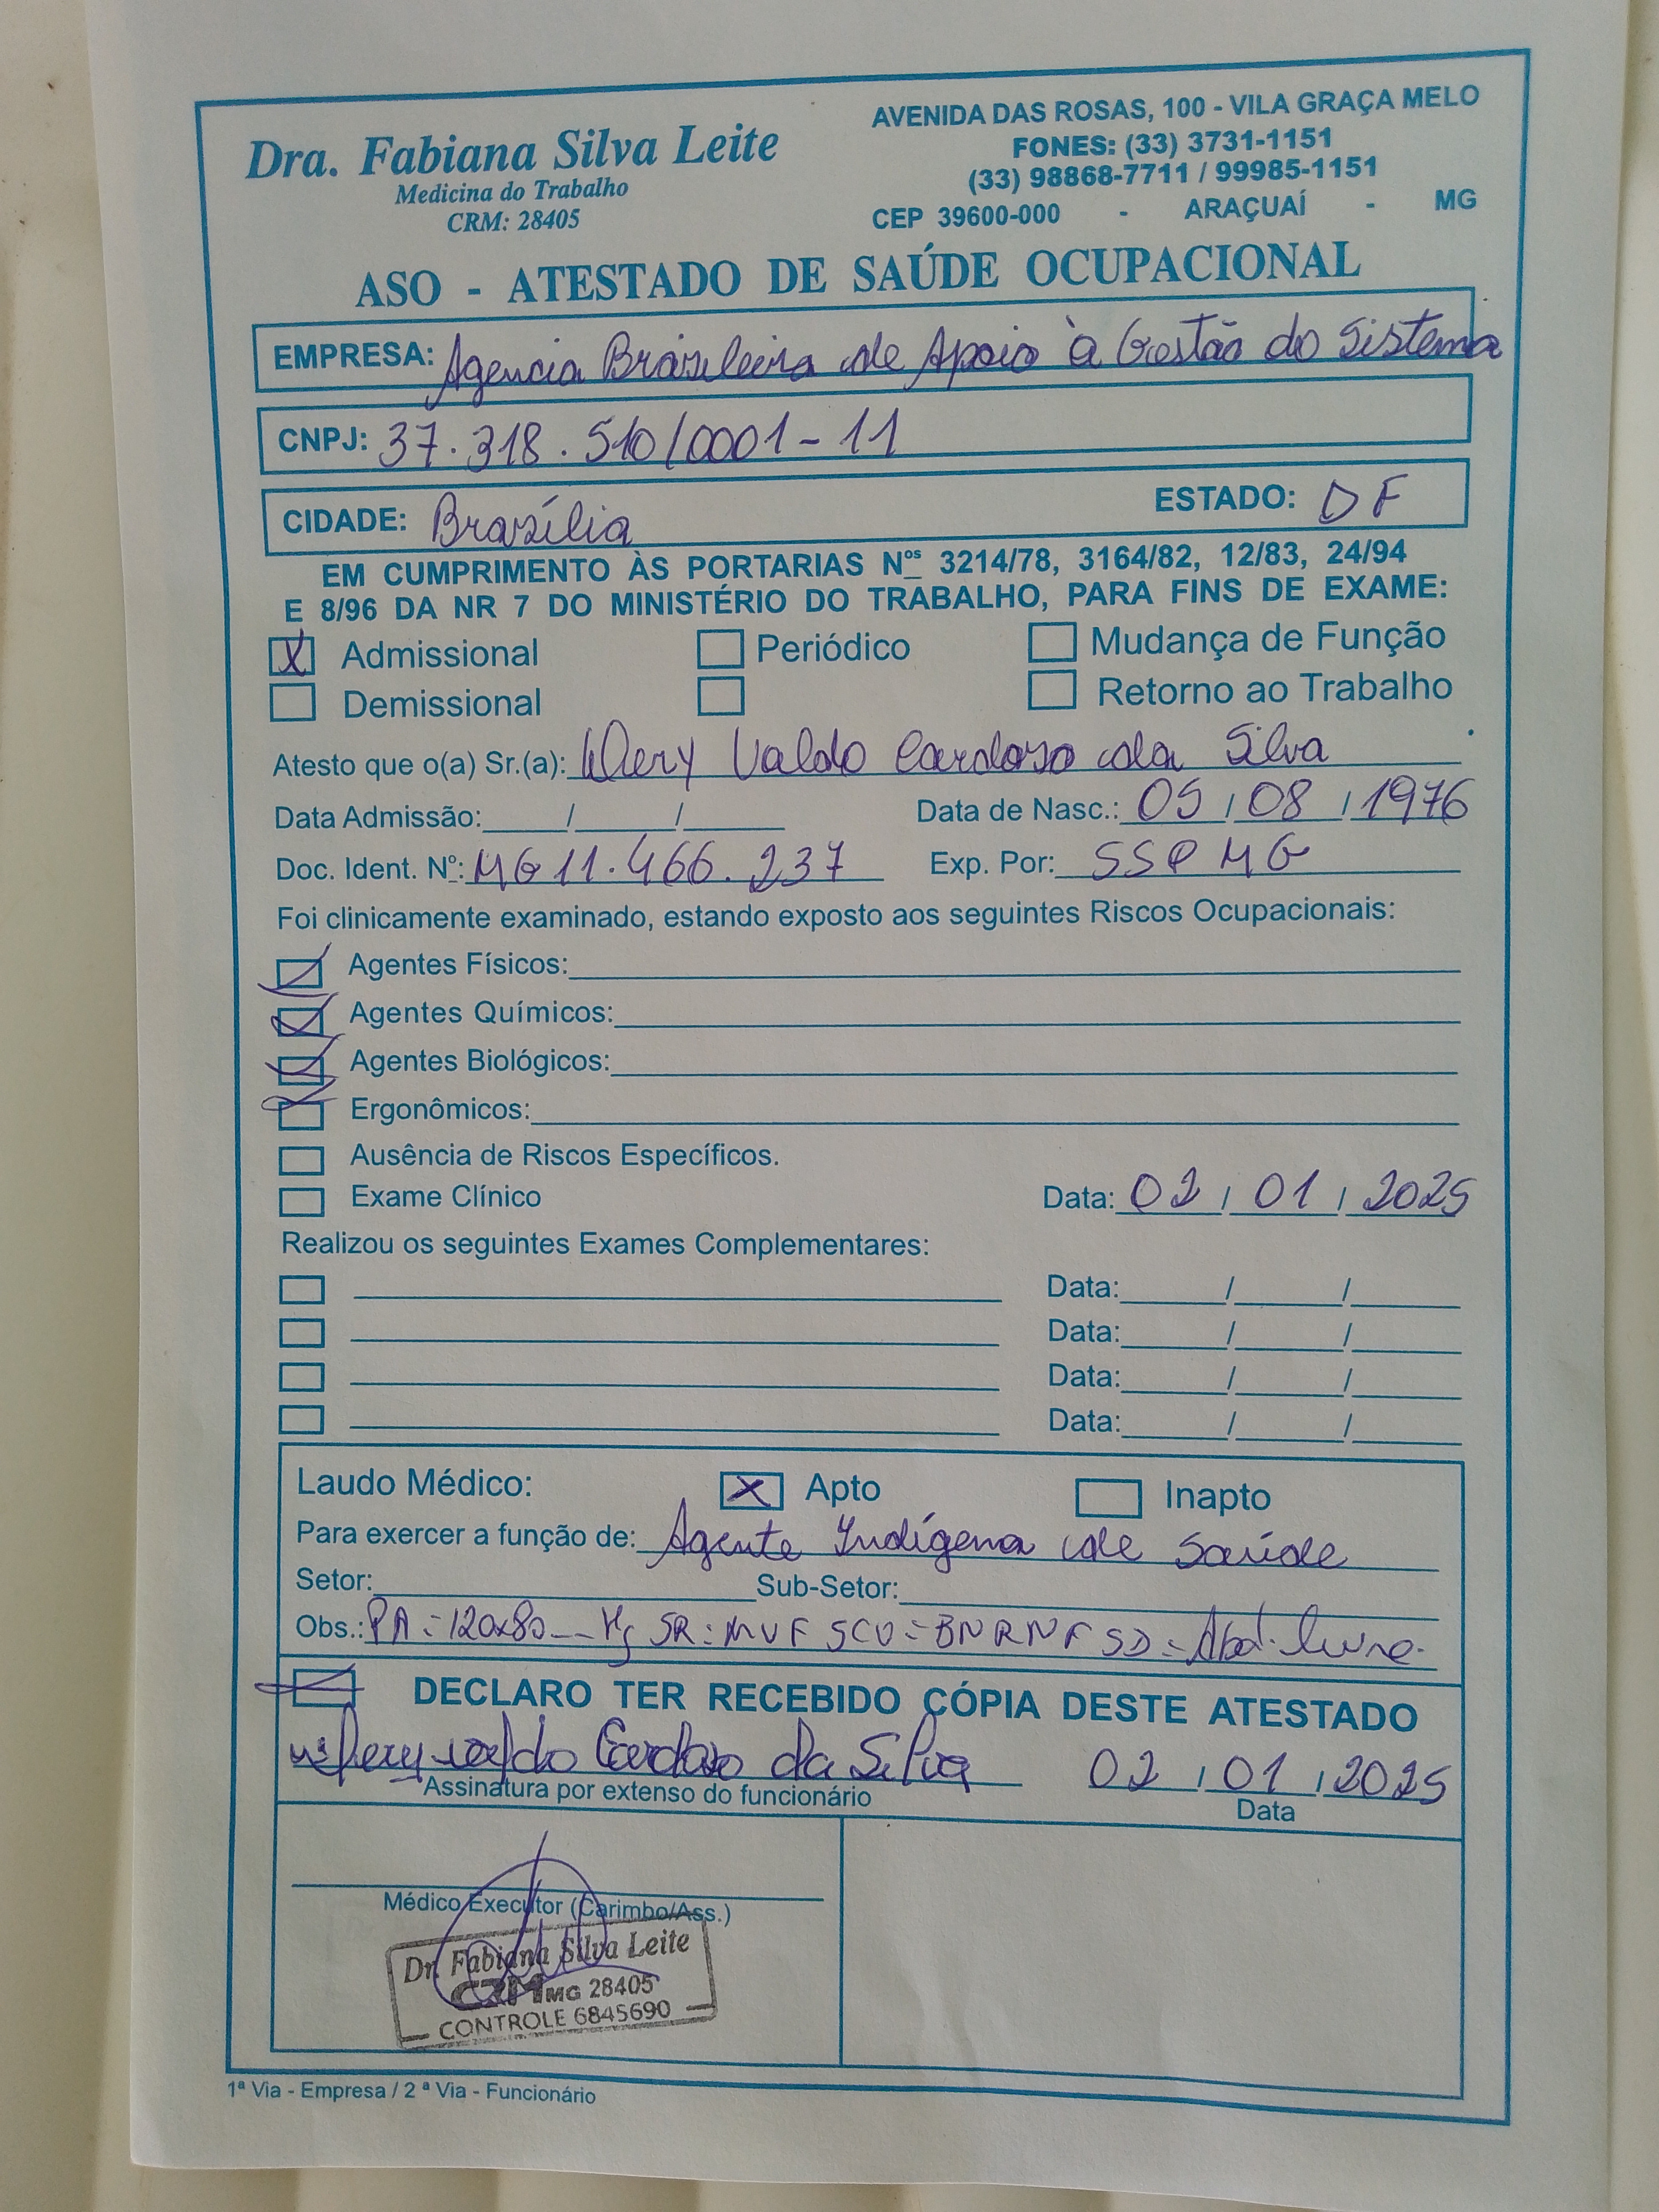 Dra. Fabiana Silva Leite
Medicina do Trabalho
CRM: 28405
AVENIDA DAS ROSAS, 100 - VILA GRAÇA MELO
FONES: (33) 3731-1151
(33) 98868-7711 / 99985-1151
CEP 39600-000 - ARAÇUAÍ - MG
ASO - ATESTADO DE SAÚDE OCUPACIONAL
EMPRESA: Agencia Brasileira de Apoio à Gestão do Sistema
CNPJ: 37.318.510/0001-11
CIDADE: Brasília ESTADO: DF
EM CUMPRIMENTO ÀS PORTARIAS Nºs 3214/78, 3164/82, 12/83, 24/94
E 8/96 DA NR 7 DO MINISTÉRIO DO TRABALHO, PARA FINS DE EXAME:
X Admissional Periódico Mudança de Função
Demissional Retorno ao Trabalho
Atesto que o(a) Sr.(a): Valdo Cardoso da Silva
Data Admissão: / / Data de Nasc.: 05 / 08 / 1976
Doc. Ident. Nº: MG 11.466.237 Exp. Por: SSP MG
Foi clinicamente examinado, estando exposto aos seguintes Riscos Ocupacionais:
Agentes Físicos:
Agentes Químicos:
Agentes Biológicos:
Ergonômicos:
Ausência de Riscos Específicos.
Exame Clínico Data: 02 / 01 / 2025
Realizou os seguintes Exames Complementares:
Data: / /
Data: / /
Data: / /
Data: / /
Laudo Médico: X Apto Inapto
Para exercer a função de: Agente Indígena de Saúde
Setor: Sub-Setor:
Obs.: PA = 120x80 Hg SR: MVF SCV = BNRNF SD = Abd. livre.
DECLARO TER RECEBIDO CÓPIA DESTE ATESTADO
Cardoso da Silva 02 / 01 / 2025
Assinatura por extenso do funcionário Data
Médico Executor (Carimbo/Ass.)
Dr. Fabiana Silva Leite
CRM MG 28405
CONTROLE 6845690
1ª Via - Empresa / 2ª Via - Funcionário